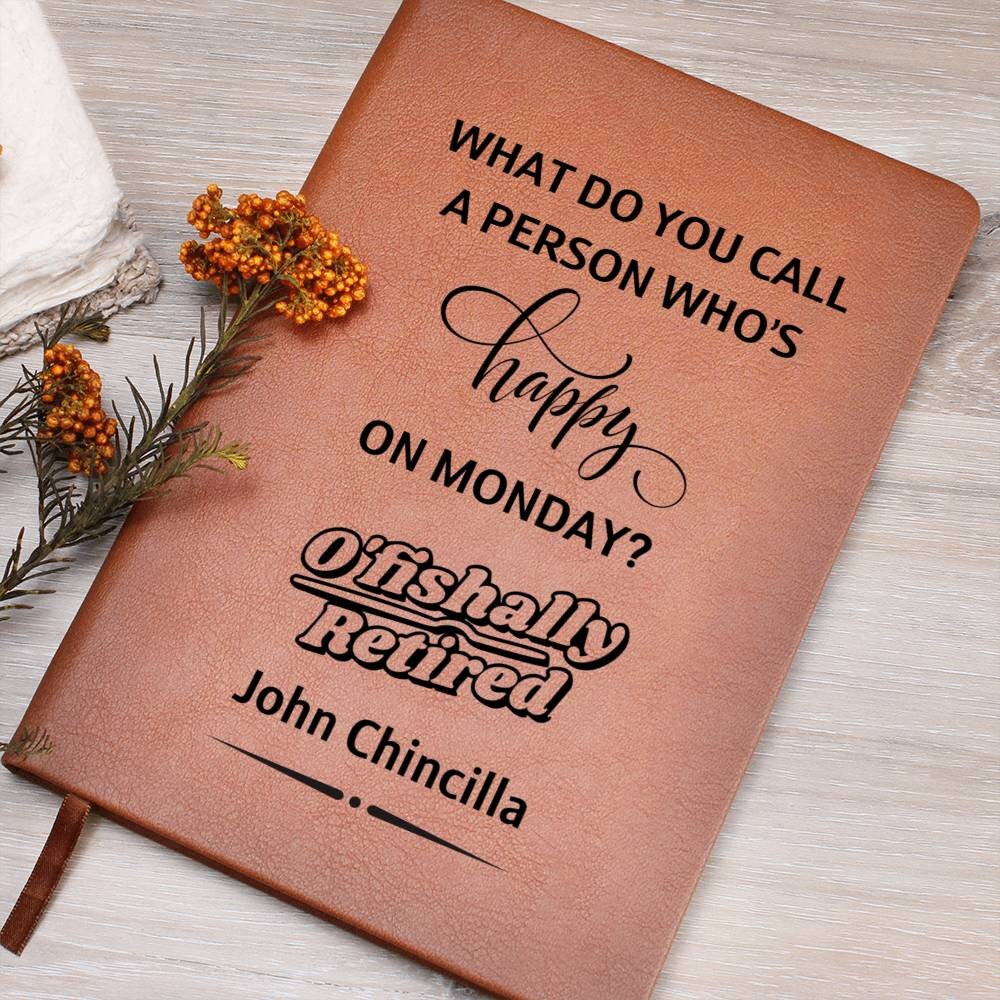 WHAT DO YOU CALL
A PERSON WHO'S
happy
ON MONDAY?
O'fishally
Retired
John Chincilla